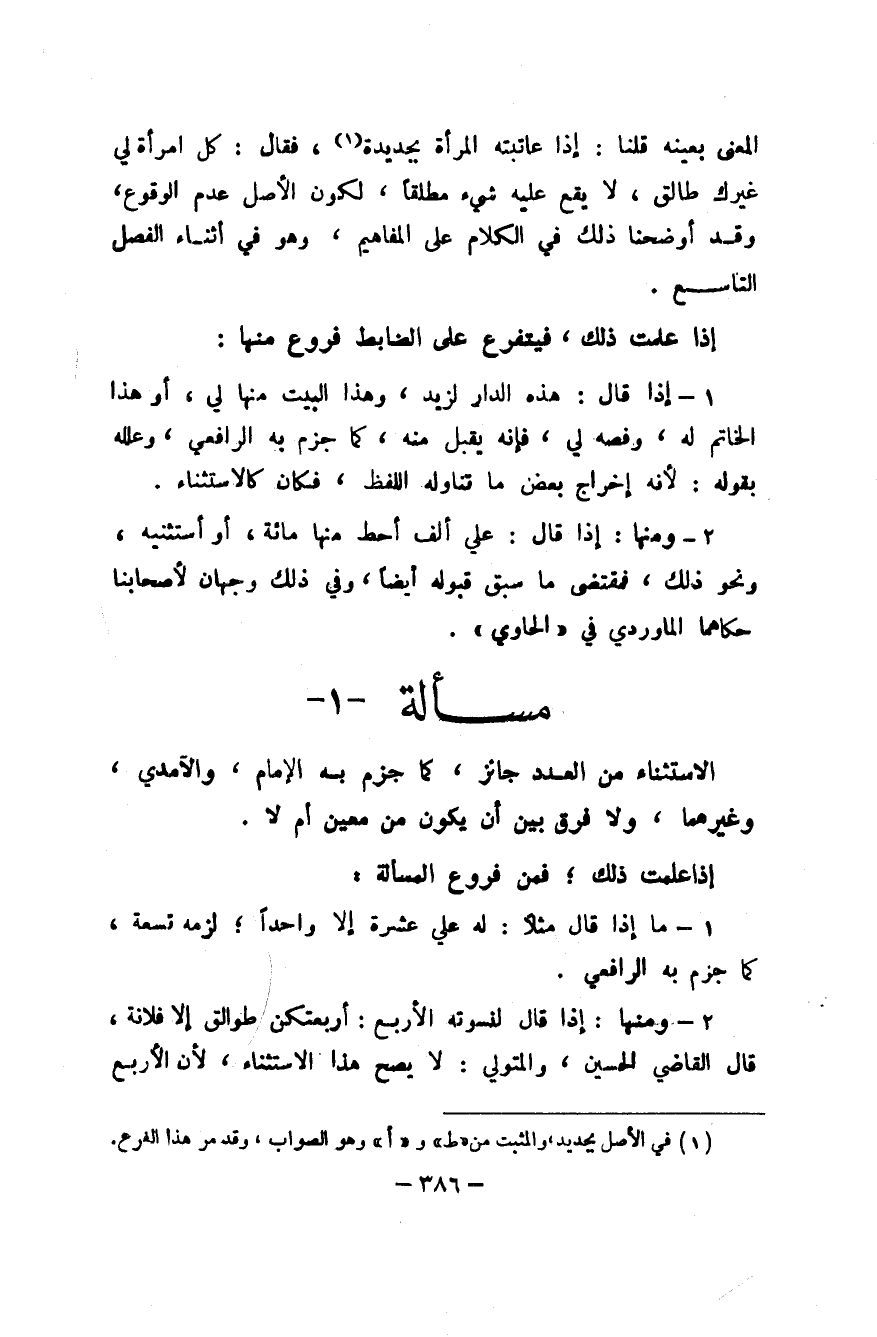 المعنى بعينه قلنا : إذا عاتبته المرأة بجديدة(١) ، فقال : كل امرأة لي
غيرك طالق ، لا يقع عليه شيء مطلقاً ، لكون الأصل عدم الوقوع،
وقـد أوضحنا ذلك في الكلام على المفاهيم ، وهو في أثنـاء الفصل
التاســـع .
إذا علمت ذلك ، فيتفرع على الضابط فروع منها :
١ – إذا قال : هذه الدار لزيد ، وهذا البيت منها لي ، أو هذا
الخاتم له ، وفصه لي ، فإنه يقبل منه ، كما جزم به الرافعي ، وعلله
بقوله : لأنه إخراج بعض ما تناوله اللفظ ، فكان كالاستثناء .
٢ – ومنها : إذا قال : علي ألف أحط منها مائة ، أو أستثنيه ،
ونحو ذلك ، فمقتضى ما سبق قبوله أيضاً ، وفي ذلك وجهان لأصحابنا
حكاهما الماوردي في « الحاوي » .
مســـألة –١–
الاستثناء من العـدد جائز ، كما جزم بـه الإمام ، والآمدي ،
وغيرهما ، ولا فرق بين أن يكون من معين أم لا .
إذاعلمت ذلك ؛ فمن فروع المسألة :
١ – ما إذا قال مثلاً : له علي عشرة إلا واحداً ؛ لزمه تسعة ،
كما جزم به الرافعي .
٢ – ومنهـا : إذا قال لنسوته الأربـع : أربعتكن طوالق إلا فلانة ،
قال القاضي الحسين ، والمتولي : لا يصح هذا الاستثناء ، لأن الأربـع
(١) في الأصل بجديد،والمثبت من«ط» و « أ » وهو الصواب ، وقد مر هذا الفرع.
– ٣٨٦ –